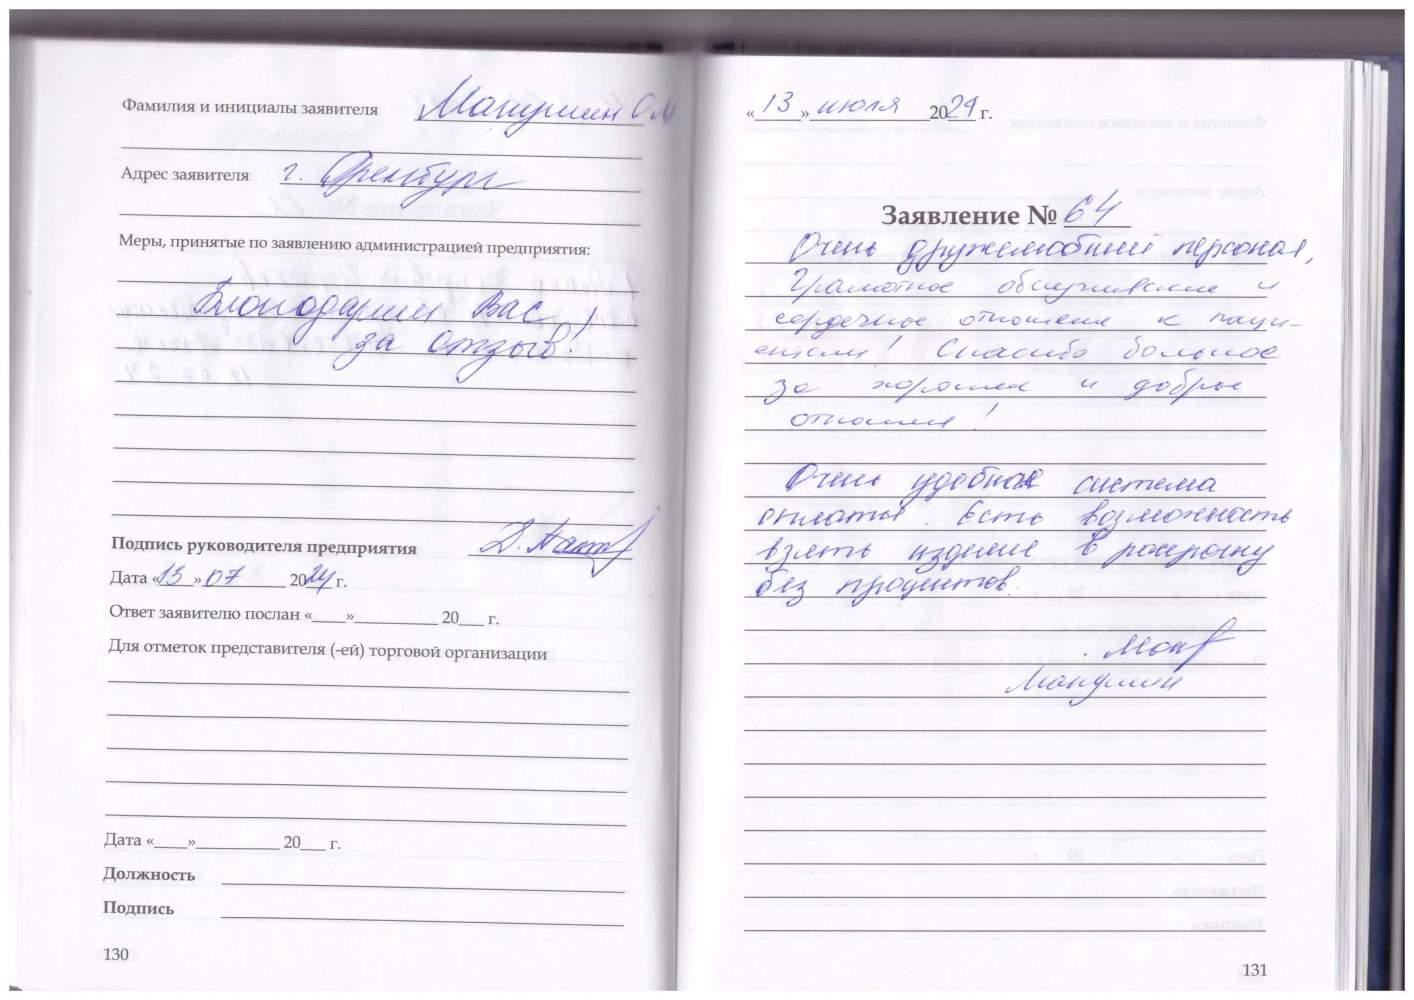 Фамилия и инициалы заявителя Манушин О М
Адрес заявителя г. Оренбург
Меры, принятые по заявлению администрацией предприятия:
Благодарим Вас
за отзыв!
Подпись руководителя предприятия
Дата «13» 07 2024 г.
Ответ заявителю послан «____»__________ 20___ г.
Для отметок представителя (-ей) торговой организации
Дата «____»__________ 20___ г.
Должность
Подпись
130
«13» июля 2024 г.
Заявление № 64
Очень дружелюбный персонал,
Грамотное обслуживание и
сердечное отношение к паци-
ентам! Спасибо большое
за хорошее и доброе
отношение!
Очень удобная система
оплаты. Есть возможность
взять изделие в рассрочку
без процентов.
Манушин
131